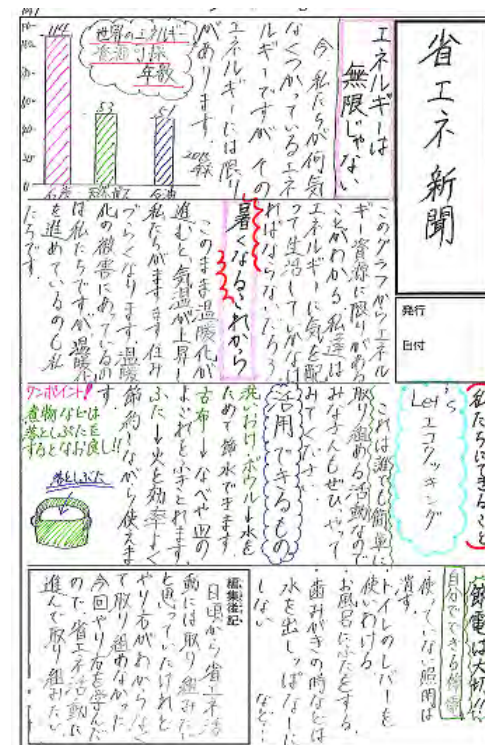 省エネ新聞
発行
日付
エネルギーは
無限じゃない
今、私たちが何気
なくつかっているエネ
ルギーですが、その
エネルギーには限り
があります。
世界のエネルギー
資源可採
年数
114
53
51
石炭
天然ガス
石油
このグラフからエネル
ギー資源に限りがある
ことがわかる。私達は
エネルギーに気を配
って生活していかなけ
ればならないだろう。
暑くなるこれから
このまま温暖化が
進むと、気温が上昇し
私たちがますます住み
づらくなります。温暖
化の被害にあっているの
は私たちですが、温暖化
を進めているのも私
たちです。
私たちにできること
Let's
エコクッキング
これは誰でも簡単に
取り組める活動なので
みなさんもぜひやって
みてください。
活用できるもの
洗いおけ・ボウル→水を
ためて節水できます。
古布→なべや皿の
よごれをふきとれます。
ふた→火を効率よく
節約しながら使えま
す。
ワンポイント!
煮物などは
落としぶたを
するとなお良し!!
落としぶた
節電は大切!!
自分でできる節電
・使っていない照明は
消す。
・トイレのレバーを
使いわける。
・お風呂にふたをする。
・歯みがきの時などは
水を出しっぱなしに
しない
など…
編集後記
日頃から省エネ活
動には取り組みたい
と思っていたけれど
やり方がわからなく
て取り組めなかった。
今回やり方を学んだ
ので、省エネ活動に
進んで取り組みたい。